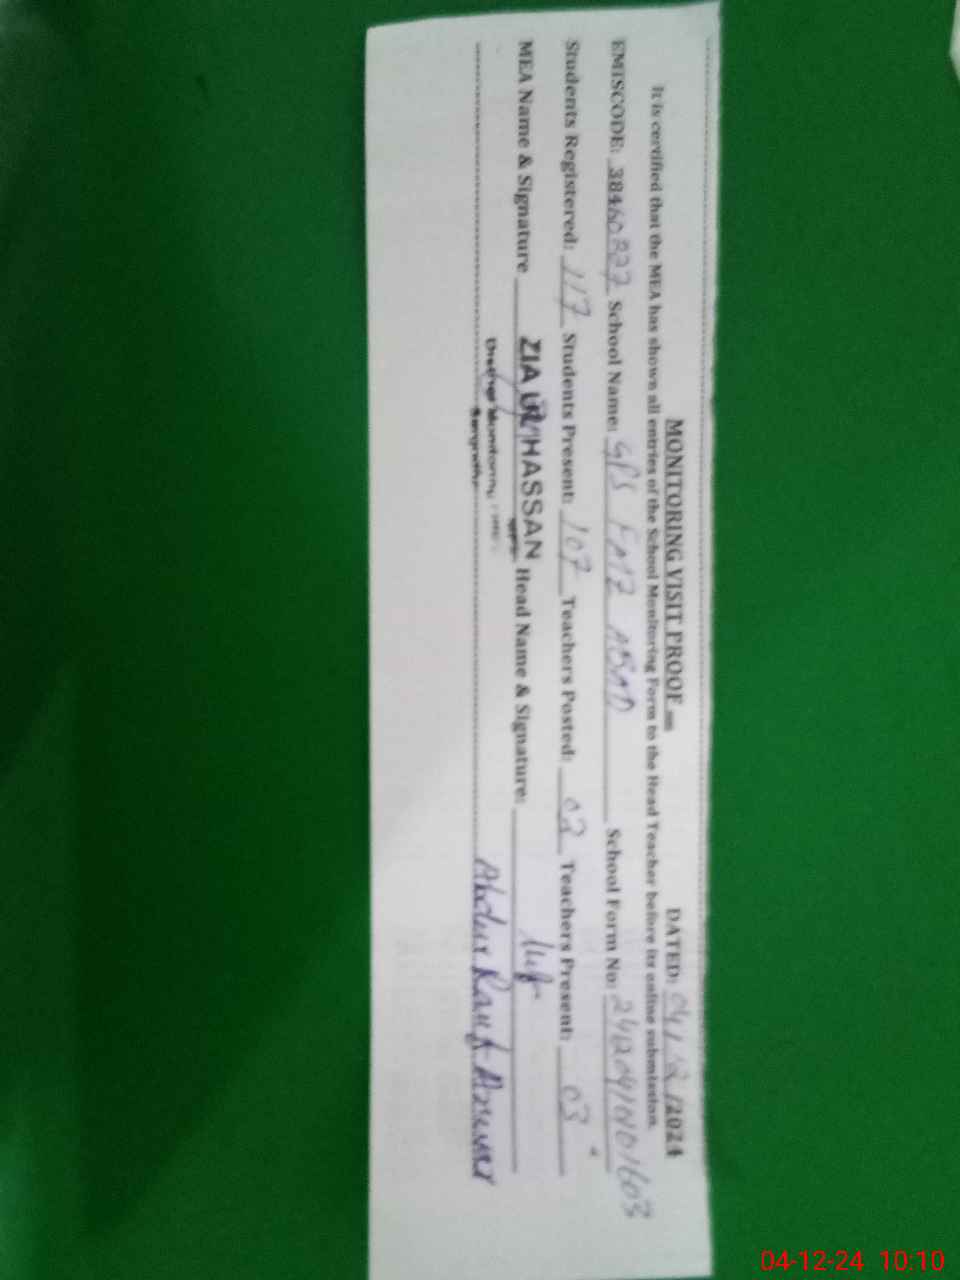 MONITORING VISIT PROOF DATED: 04/12/2024
It is certified that the MEA has shown all entries of the School Monitoring Form to the Head Teacher before its online submission.
EMISCODE: 38460227 School Name: GPS FAIZ ABAD School Form No:
Students Registered: 117 Students Present: 107 Teachers Posted: 03 Teachers Present: 03
MEA Name & Signature ZIA UL HASSAN Head Name & Signature:
District Monitoring
Sargodha
Abdur Rauf
04-12-24 10:10